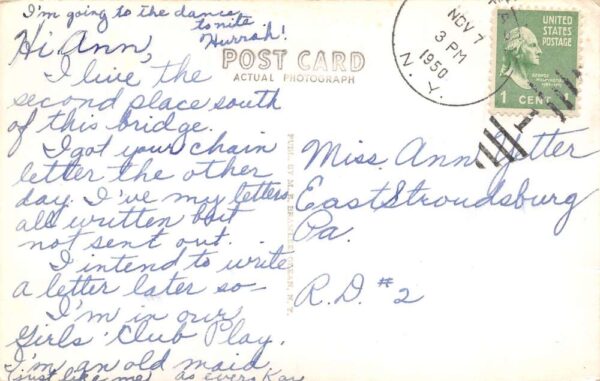 I'm going to the dance
to nite
Hurrah!
Hi Ann,
I live the
second place south
of this bridge.
I got your chain
letter the other
day. I've my letters
all written but
not sent out.
I intend to write
a letter later so—
I'm in our
Girls' Club Play.
I'm an old maid
(just like me) as ever Kay
POST CARD
ACTUAL PHOTOGRAPH
NOV 7
3 PM
1950
N. Y.
UNITED
STATES
POSTAGE
GEORGE
WASHINGTON
1 CENT 1
PUBL. BY M. F.
N. Y.
Miss Ann
East Stroudsburg
Pa.
R.D. #2